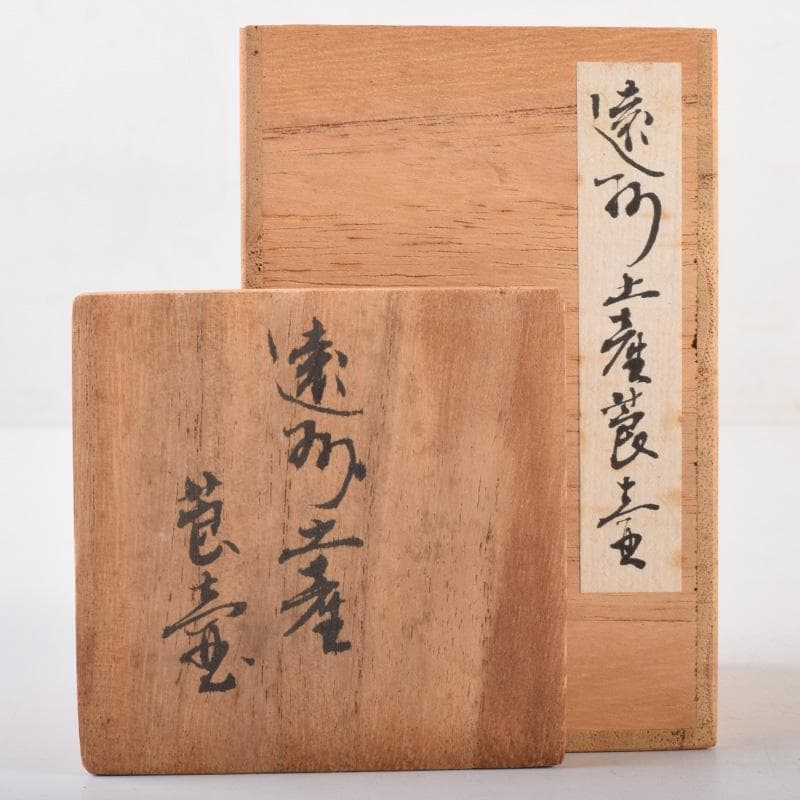 遠州土産莨壷
遠州土産
莨壷